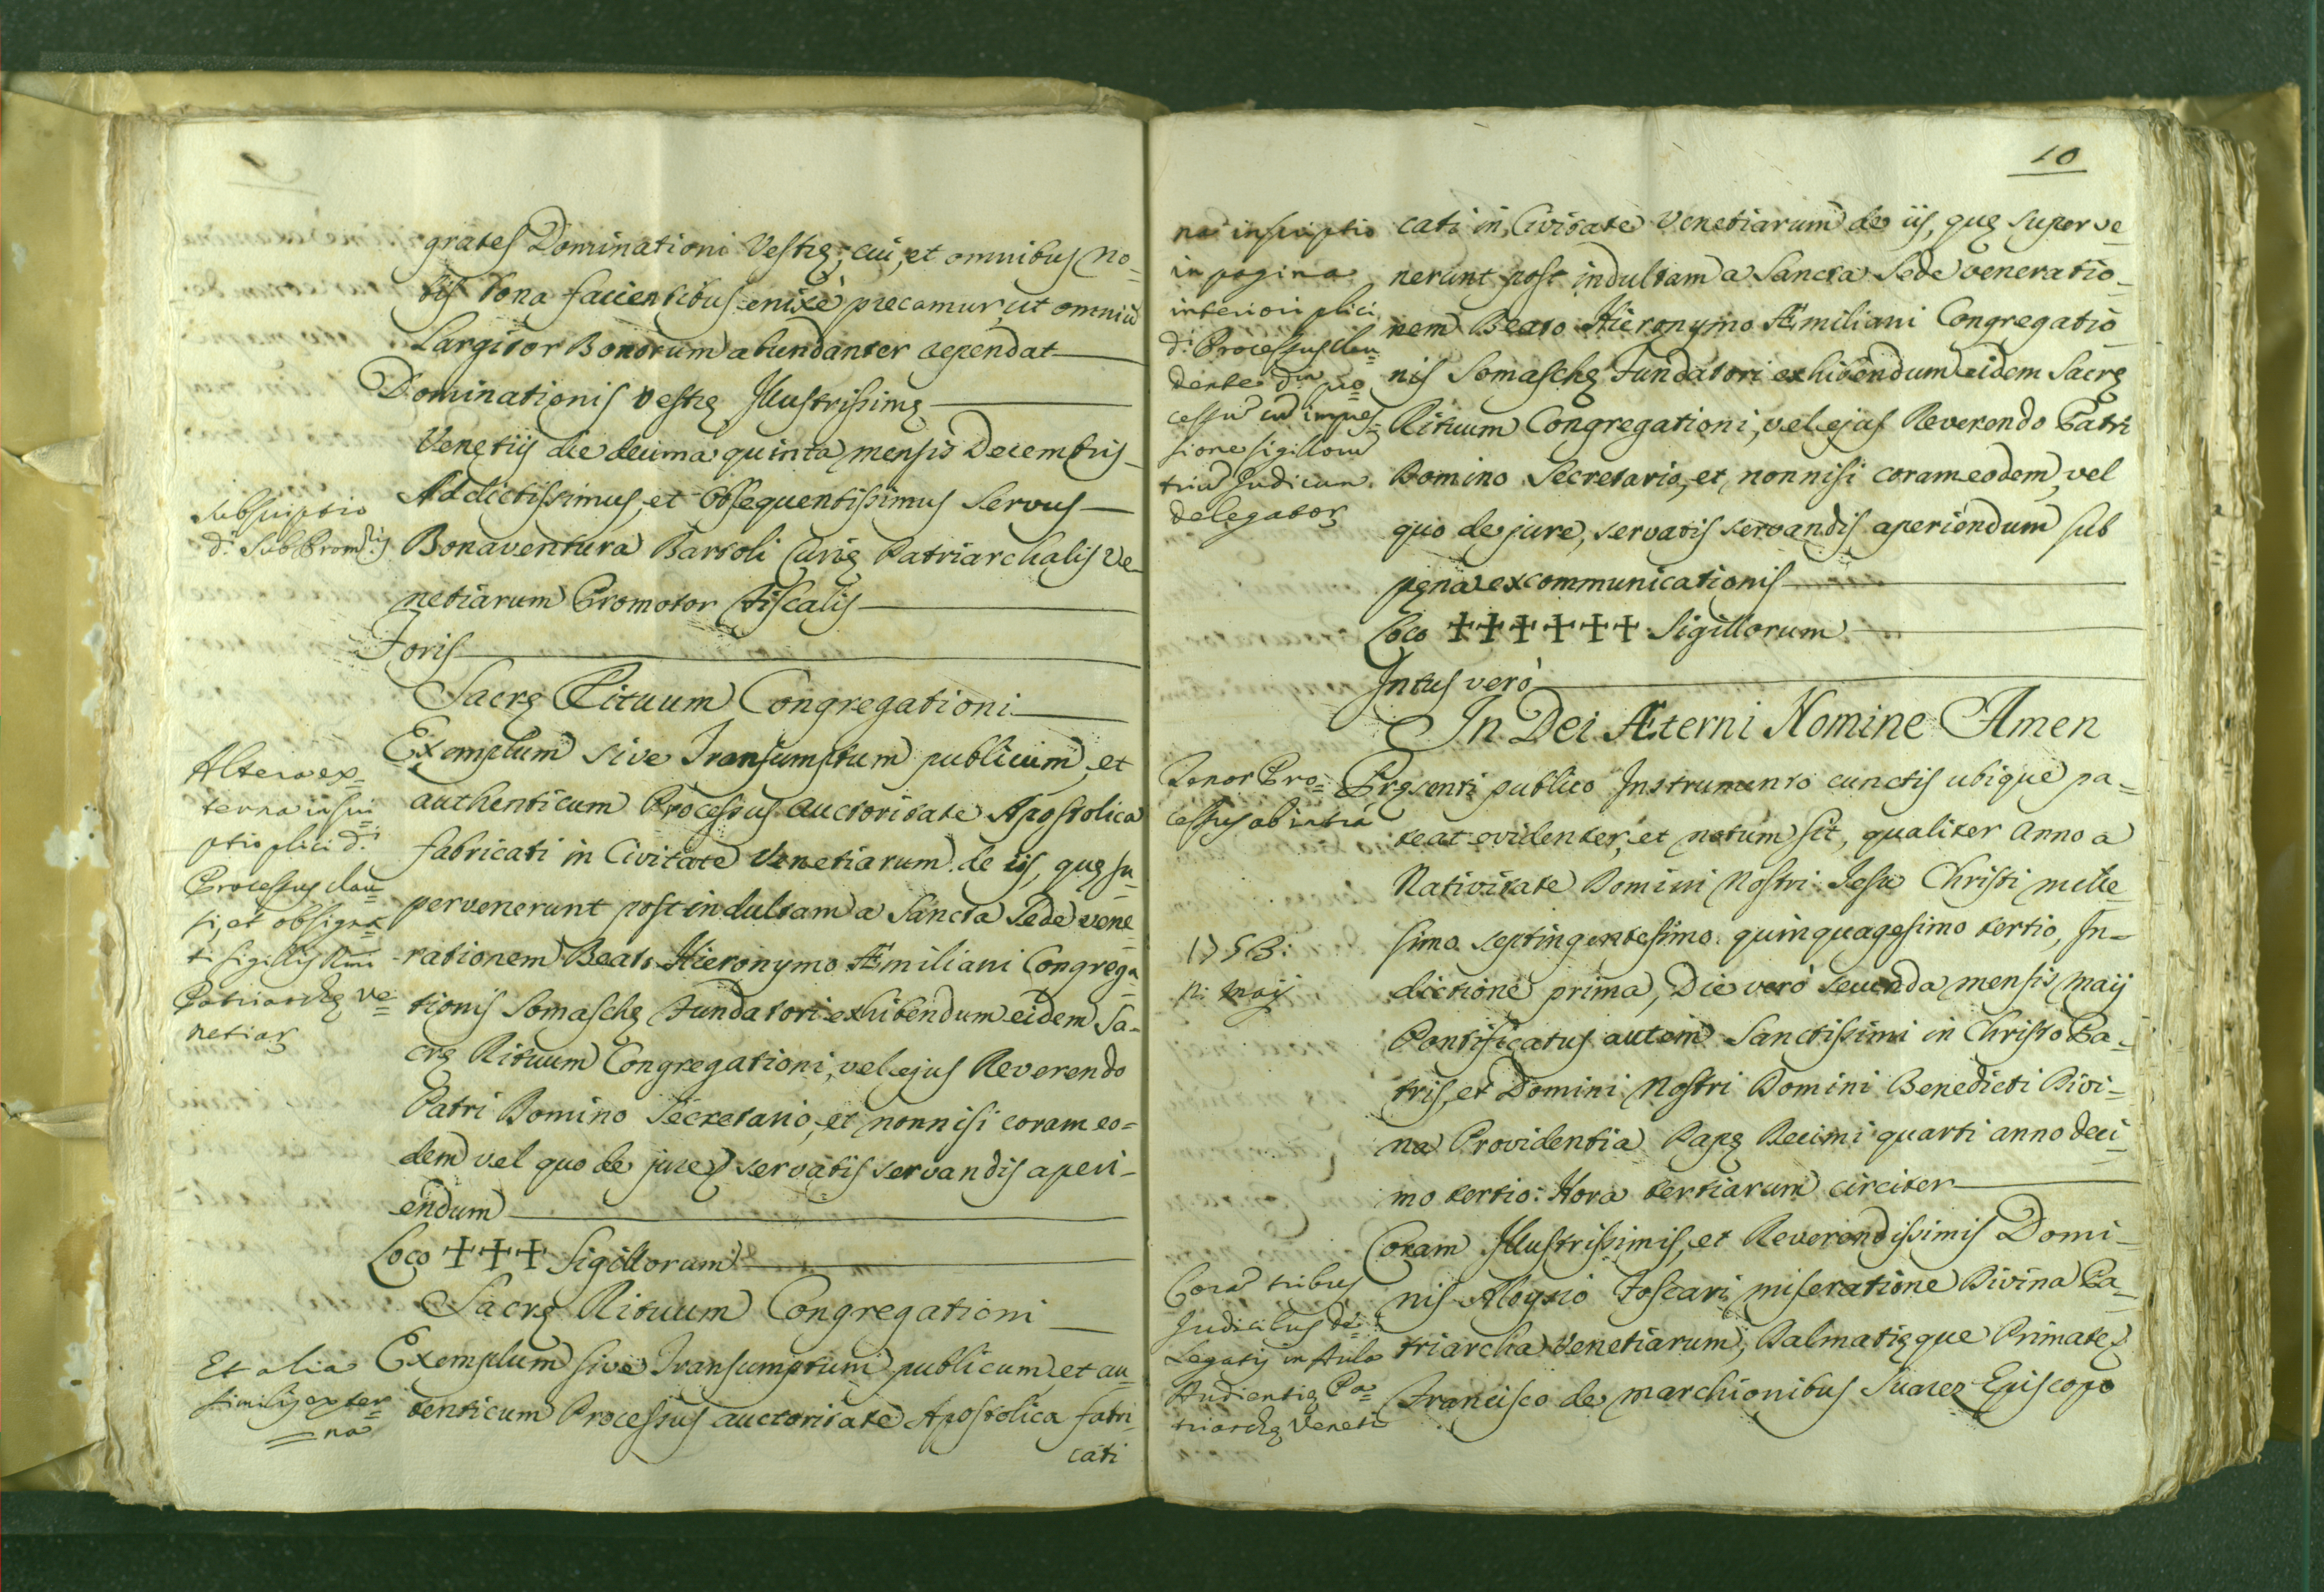 grates Dominationi Vestrę; cui, et omnibus No=
bis bona facientibus enixè precamur, ut omniũ
Largitor Bonorum abundanter rependat
Dominationis Vestrę Illustrissimę
Venetijs die decima quinta mensis Decembris
Addictissimus, et Obsequentissimus Servus
Bonaventura Bartoli Curię Patriarchalis Ve-
netiarum Promotor Fiscalis
Foris
Sacrę Rituum Congregationi
Exemplum sive Transumptum publicum, et
authenticum Processus auctoritate Apostolica
fabricati in Civitate Venetiarum de iis, quę su=
pervenerunt post indultam a Sancta Sede vene=
rationem Beato Hieronymo Æmiliani Congrega=
tionis Somaschę Fundatori exhibendum eidem Sa-
crę Rituum Congregationi, vel ejus Reverendo
Patri Domino Secretario, et nonnisi coram eo=
dem vel quo de jure, servatis servandis aperi-
endum
Loco +++ Sigillorum
Sacrę Rituum Congregationi
Exemplum sive Transumptum publicum, et au=
tenticum Processus auctoritate Apostolica fabri-
cati
Subscriptio
d.i SubProm.ris
Altera ex=
terna inscri=
ptio plici d.i
Processus clau=
si, et obsigna=
ti sigillis Rmi
Patriarchę Ve=
netiar
Et alia
similis exter=
=na
10
cati in Civitate Venetiarum de iis, quę superve=
nerunt post indultam a Sancta Sede veneratio=
nem Beato Hieronymo Æmiliani Congregatio=
nis Somaschę Fundatori exhibendum eidem Sacrę
Rituum Congregationi, vel ejus Reverendo Patri
Domino Secretario, et nonnisi coram eodem, vel
quo de jure, servatis servandis aperiendum sub
pęna excommunicationis
Loco ++++++ Sigillorum
Intus verò
In Dei Æterni Nomine Amen
Pręsenti publico Instrumento cunctis ubique pa=
teat evidenter, et notum sit, qualiter Anno a
Nativitate Domini Nostri Jesu Christi mille=
simo septingentesimo quinquagesimo tertio, In=
dictione prima, Die verò secunda mensis Maij
Pontificatus autem Sanctissimi in Christo Pa=
tris, et Domini Nostri Domini Benedicti Divi=
na Providentia Papę Decimi quarti anno deci=
mo tertio: Hora tertiarum circiter
Coram Illustrissimis, et Reverendissimis Domi=
nis Aloysio Foscari miseratione Divina Pa=
triarcha Venetiarum, Dalmatięque Primate,
Francisco de Marchionibus Suarez Episcopo
na inscriptio
in pagina
interiori plici
d.i Processus clau=
dente d.m pro=
cessũ cũ impres=
sione sigillorũ
triũ Judicum
delegator
Tenor Pro=
cessus ab intra
1753:
2: Maij
Corã tribus
Judicibus De=
Legatis in Aula
Audientię Pa=
triarchę Veneti